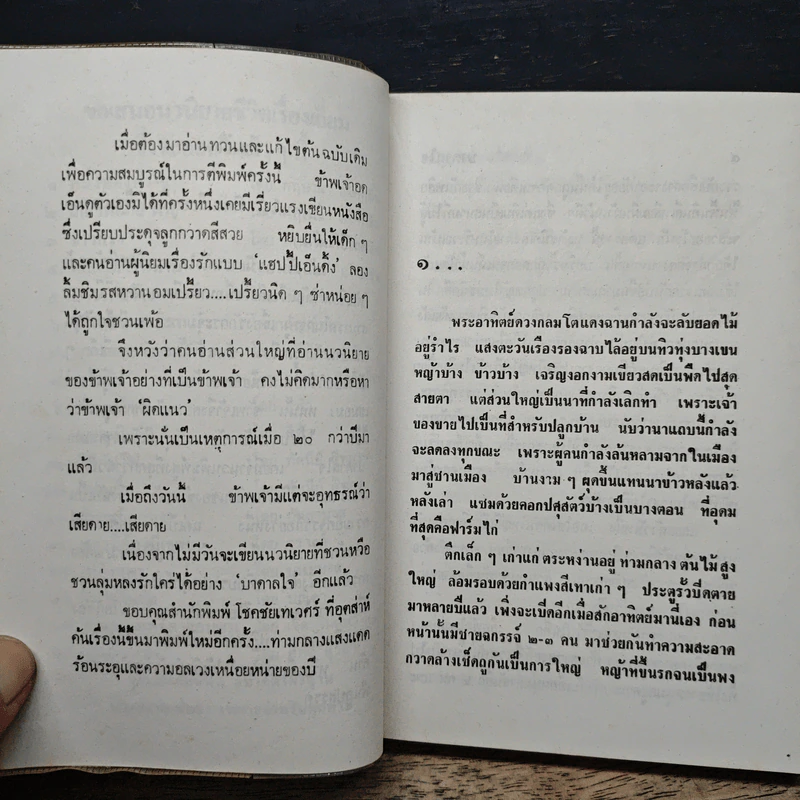 เมื่อต้องมาอ่านทวนและแก้ไขต้นฉบับเดิม
เพื่อความสมบูรณ์ในการตีพิมพ์ครั้งนี้ ข้าพเจ้าอด
เอ็นดูตัวเองมิได้ที่ครั้งหนึ่งเคยมีเรี่ยวแรงเขียนหนังสือ
ซึ่งเปรียบประดุจลูกกวาดสีสวย หยิบยื่นให้เด็ก ๆ
และคนอ่านผู้นิยมเรื่องรักแบบ 'แฮปปี้เอ็นดิ้ง' ลอง
ลิ้มชิมรสหวานอมเปรี้ยว....เปรี้ยวนิด ๆ ซ่าหน่อย ๆ
ได้ถูกใจชวนเพ้อ
จึงหวังว่าคนอ่านส่วนใหญ่ที่อ่านนวนิยาย
ของข้าพเจ้าอย่างที่เป็นข้าพเจ้า คงไม่คิดมากหรือหา
ว่าข้าพเจ้า 'ผิดแนว'
เพราะนั่นเป็นเหตุการณ์เมื่อ ๒๐ กว่าปีมา
แล้ว
เมื่อถึงวันนี้ ข้าพเจ้ามีแต่จะอุทธรณ์ว่า
เสียดาย....เสียดาย
เนื่องจากไม่มีวันจะเขียนนวนิยายที่ชวนหวือ
ชวนลุ่มหลงรักใคร่ได้อย่าง 'บาดาลใจ' อีกแล้ว
ขอบคุณสำนักพิมพ์ โชคชัยเทเวศร์ ที่อุตส่าห์
ค้นเรื่องนี้ขึ้นมาพิมพ์ใหม่อีกครั้ง....ท่ามกลางแสงแดด
ร้อนระอุและความอลเวงเหนื่อยหน่ายของปี
๑...
พระอาทิตย์ดวงกลมโตแดงฉานกำลังจะลับยอดไม้
อยู่รำไร แสงตะวันเรืองรองฉาบไล้อยู่บนทิวทุ่งบางเขน
หญ้าบ้าง ข้าวบ้าง เจริญงอกงามเขียวสดเป็นพืดไปสุด
สายตา แต่ส่วนใหญ่เป็นนาที่กำลังเลิกทำ เพราะเจ้า
ของขายไปเป็นที่สำหรับปลูกบ้าน นับว่านาแถบนี้กำลัง
จะลดลงทุกขณะ เพราะผู้คนกำลังล้นหลามจากในเมือง
มาสู่ชานเมือง บ้านงาม ๆ ผุดขึ้นแทนนาข้าวหลังแล้ว
หลังเล่า แซมด้วยคอกปศุสัตว์บ้างเป็นบางตอน ที่อุดม
ที่สุดคือฟาร์มไก่
ตึกเล็ก ๆ เก่าแก่ ตระหง่านอยู่ ท่ามกลาง ต้นไม้ สูง
ใหญ่ ล้อมรอบด้วยกำแพงสีเทาเก่า ๆ ประตูรั้วปิดตาย
มาหลายปีแล้ว เพิ่งจะเปิดอีกเมื่อสักอาทิตย์มานี่เอง ก่อน
หน้านั้นมีชายฉกรรจ์ ๒-๓ คน มาช่วยกันทำความสะอาด
กวาดล้างเช็ดถูกันเป็นการใหญ่ หญ้าที่ขึ้นรกจนเป็นพง